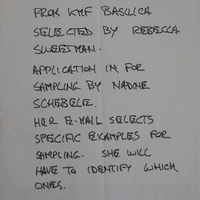 FROM KMF BASILICA
SELECTED BY REBECCA
SWEETMAN.
APPLICATION IN FOR
SAMPLING BY NADINE
SCHIBELLE.
HER E-MAIL SELECTS
SPECIFIC EXAMPLES FOR
SAMPLING. SHE WILL
HAVE TO IDENTIFY WHICH
ONES.